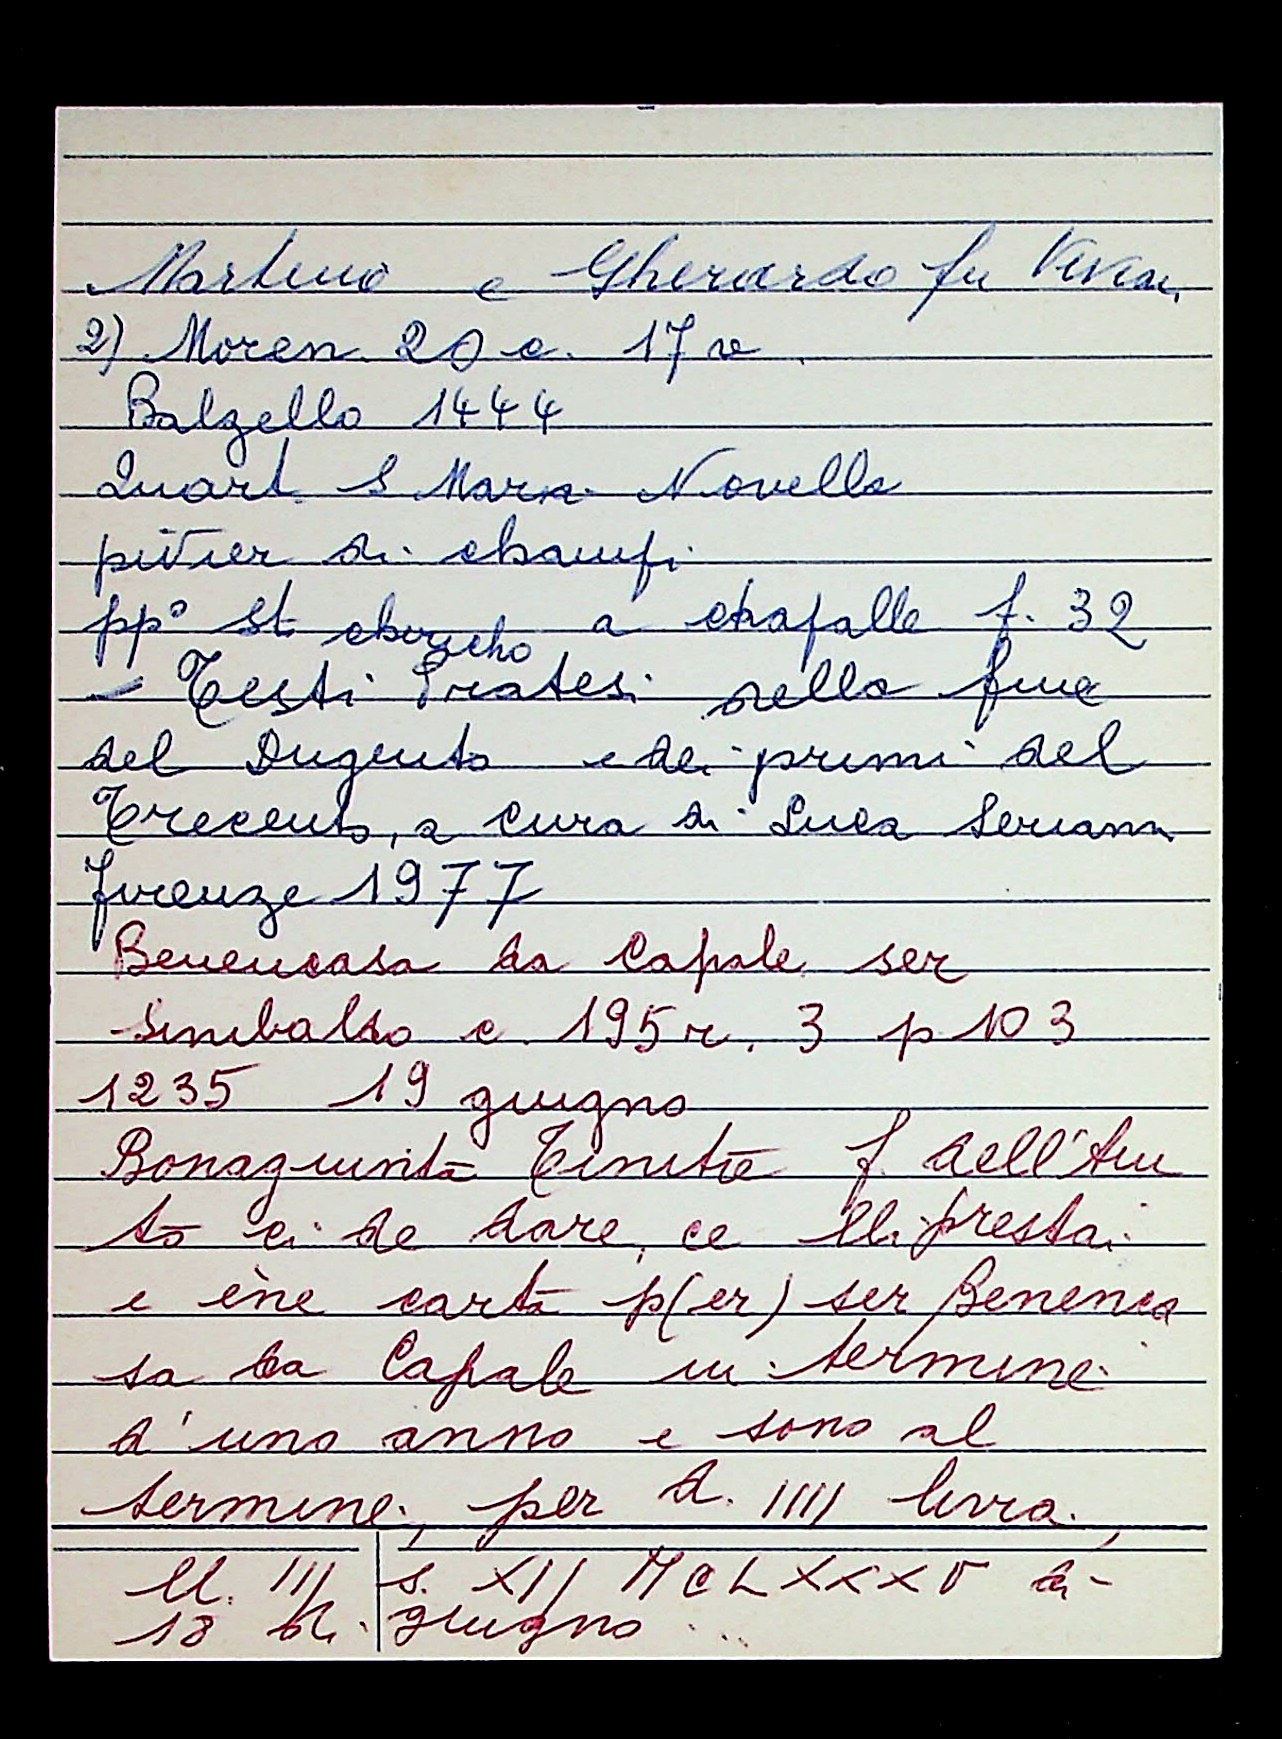 Martino e Gherardo fu Vivian
2) Moren 20 c. 17 v.
Balzello 1444
Quart. S Maria Novella
pivier di champi
pp° St. a chapalle f. 32
- Testi Pratesi nella fine
del Dugento e dei primi del
Trecento, a cura di Luca Seriann
firenze 1977
Benencasa da Capale ser
Sinibaldo c. 195 r. 3 p 103
1235 19 giugno
Bonagiunta f. dell'Am
to ci de dare, ce lli prestai
e ène carta p(er) ser Benenca
sa da Capale in termine
d'uno anno e sono al
termine, per d. IIII livra.,
ll. III s. XII MCLXXXV di
18 di giugno ...